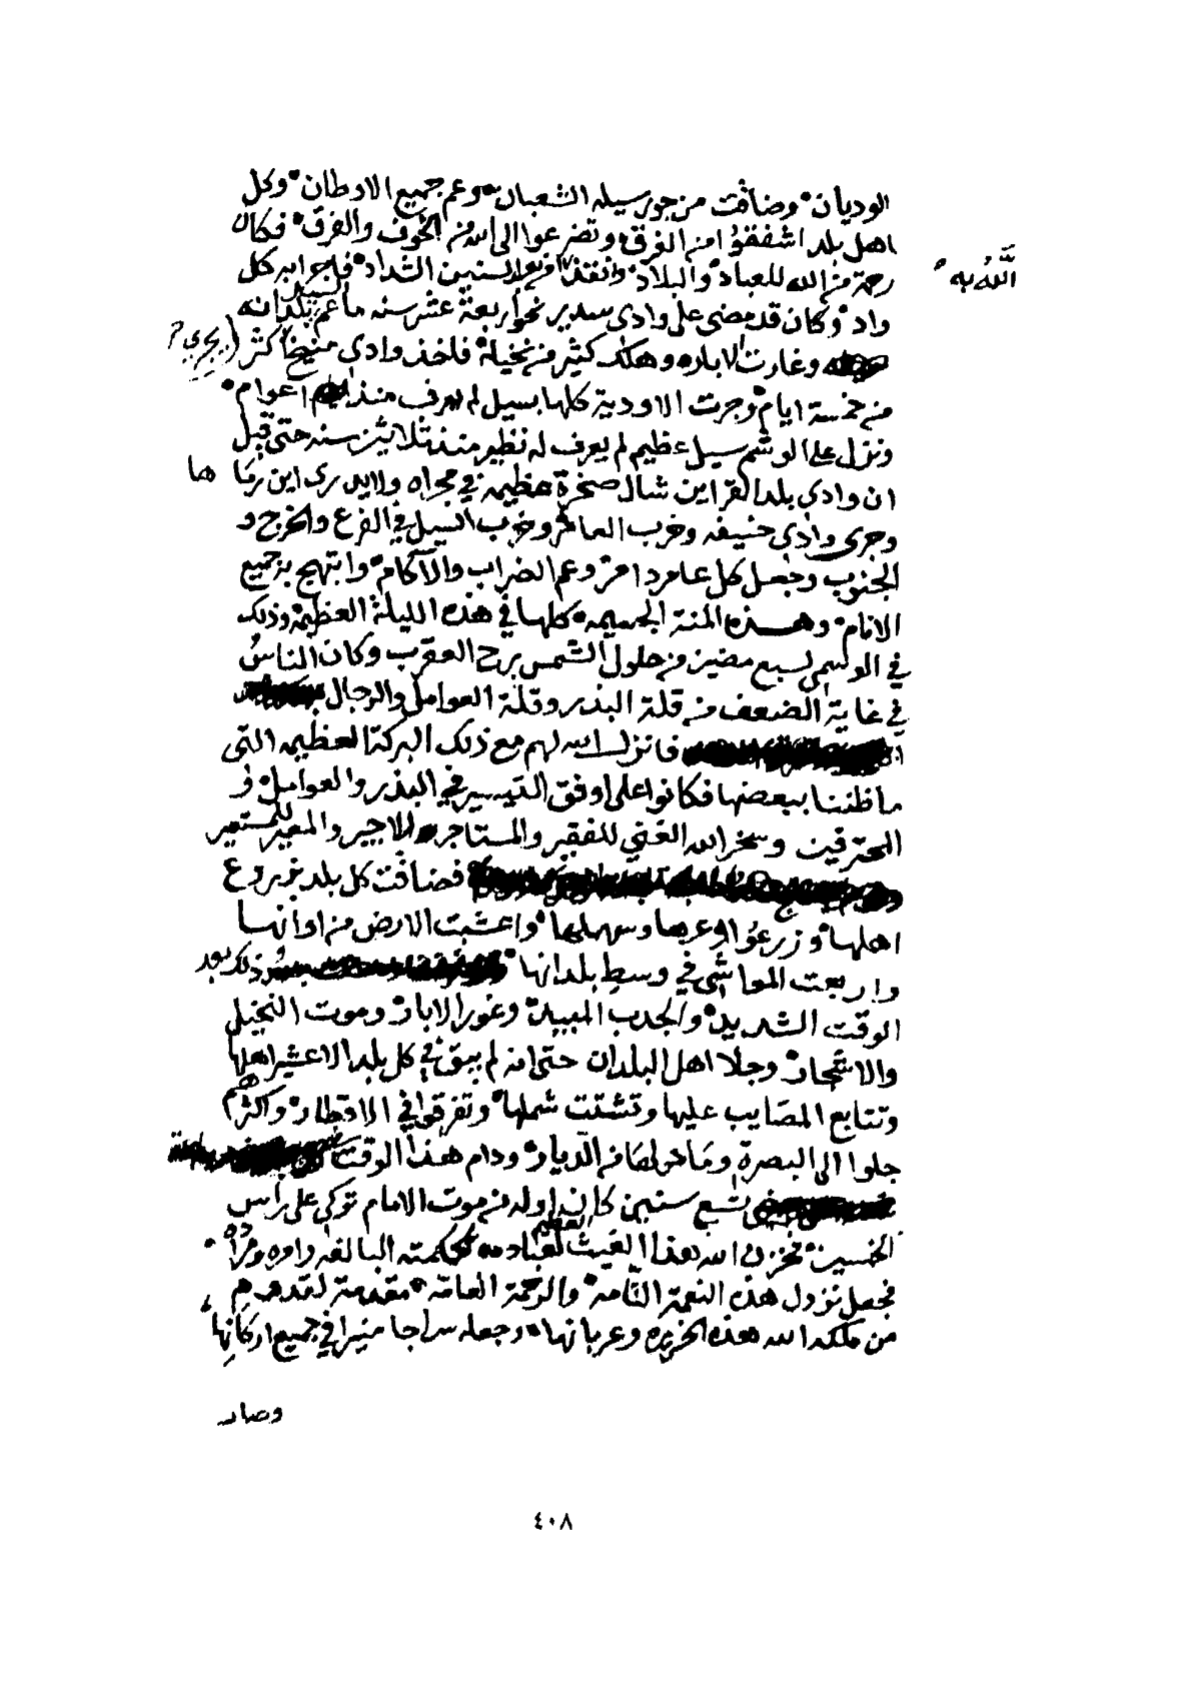 الوديان وضاقت من جور سيله الشعبان وعم جميع الاوطان وكل
اهل بلد اشفقوا من الغرق وتضرعوا الى الله من الخوف والفرق فكان
رحمة من الله للعباد والبلاد وانقذ الله به من السنين الشداد فاجرا به كل
واد وكان قد مضى على وادى سدير نحو اربعة عشر سنه ما عم السيل بلدانه
وغارت الاباره وهلك كثير من نخيله فاخذ وادى منيخ يجري اكثر
من خمسة ايام وجرت الاودية كلها بسيل لم يعرف منذ اعوام
ونزل على الوشم سيل عظيم لم يعرف له نظير منذ ثلاثين سنه حتى قيل
ان وادي بلد القراين شال صخرة عظيمه في مجراه ولا يدرى اين رماها
وجرى وادى حنيفه وخرب العامر وخرب السيل في الفرع والخرج و
الجنوب وجعل كل عامر دامر وعم الضراب والآكام وابتهج به جميع
الانام وهذه المنة الجسيمه كلها في هذه الليلة العظيمه وذلك
في الوسمى لسبع مضين من حلول الشمس برج العقرب وكان الناسُ
في غاية الضعف من قلة البذر وقلة العوامل والرجال
فانزل الله لهم مع ذلك البركة العظيمه التى
ما ظننا ببعضها فكانوا على اوفق التيسير في البذر والعوامل و
المحترفين وسخر الله الغني للفقير والمستاجر للاجير والمعير للمستعير
فضاقت كل بلد بزروع
اهلها وزرعوا وعرها وسهلها واعشبت الارض من اوانها
واربعت المواشى في وسط بلدانها وذلك بعد
الوقت الشديد والجدب المبيد وغور الابار وموت النخيل
والاشجار وجلا اهل البلدان حتى انه لم يبق في كل بلد الا عشير اهلها
وتتابع المصايب عليها وتشتت شملها وتفرقوا في الاقطار واكثرهم
جلوا الى البصرة وما حولها من الديار ودام هذا الوقت
تسع سنين كان اوله من موت الامام تركي على راس
الخمسين فخزن الله هذا الغيث العظيم لعباده بحكمته البالغه وامره ومراده
فجعل نزول هذه النعمة التامه والرحمة العامه مقدمة لقدوم
من ملكه الله هذه الجزيره وعربانها وجعله سراجا منيرا في جميع اركانها
وصار
٤٠٨